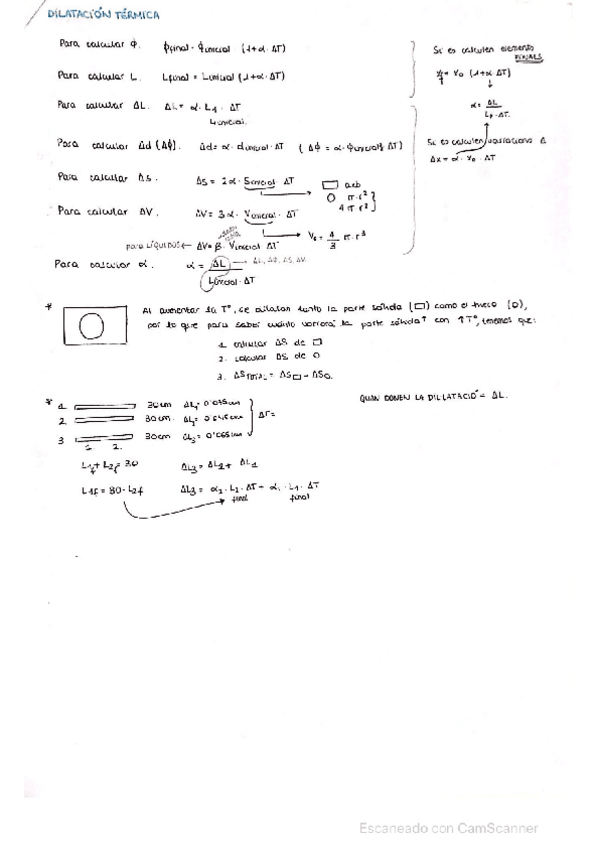 DILATACIÓN TÉRMICA
Para calcular Φ. Φfinal = Φinicial (1+α·ΔT)
Para calcular L. Lfinal = Linicial (1+α·ΔT)
Para calcular ΔL. ΔL = α· L1· ΔT
Linicial.
Para calcular Δd (ΔΦ). Δd = α· dinicial· ΔT ( ΔΦ = α· Φinicial· ΔT)
Para calcular ΔS. ΔS = 2α· Sinicial· ΔT
a·b
π·r²
4π r²
Para calcular ΔV. ΔV = 3α· Vinicial· ΔT
V= 4/3 π·r³
para LÍQUIDOS ← ΔV= β· Vinicial ΔT
Para calcular α. α = ΔL / Linicial·ΔT
Si es calculen elements
FINALS
= V0 (1+α ΔT)
α= ΔL / L0·ΔT.
Si es calculen variacions Δ
Δx = α· V0 · ΔT
* Al aumentar la Tº, se dilatan tanto la parte sólida (□) como el hueco (O),
por lo que para saber cuánto la parte sólida con ↑Tº, tenemos que:
1. calcular ΔS de □
2. calcular ΔS de O
3. ΔSTOTAL = ΔS□ - ΔSO.
QUAN DONEN LA DIL·LATACIÓ = ΔL.
* 1. 30cm ΔL1= 0'075cm
2. 30cm. ΔL2= 0'045cm
ΔT=
3 30cm ΔL3= 0'065cm
1. 2.
L1f + L2f = 30 ΔL3 = ΔL2 + ΔL1
L1f = 30 - L2f ΔL3 = α2· L2· ΔT + α1· L1· ΔT
final final
Escaneado con CamScanner